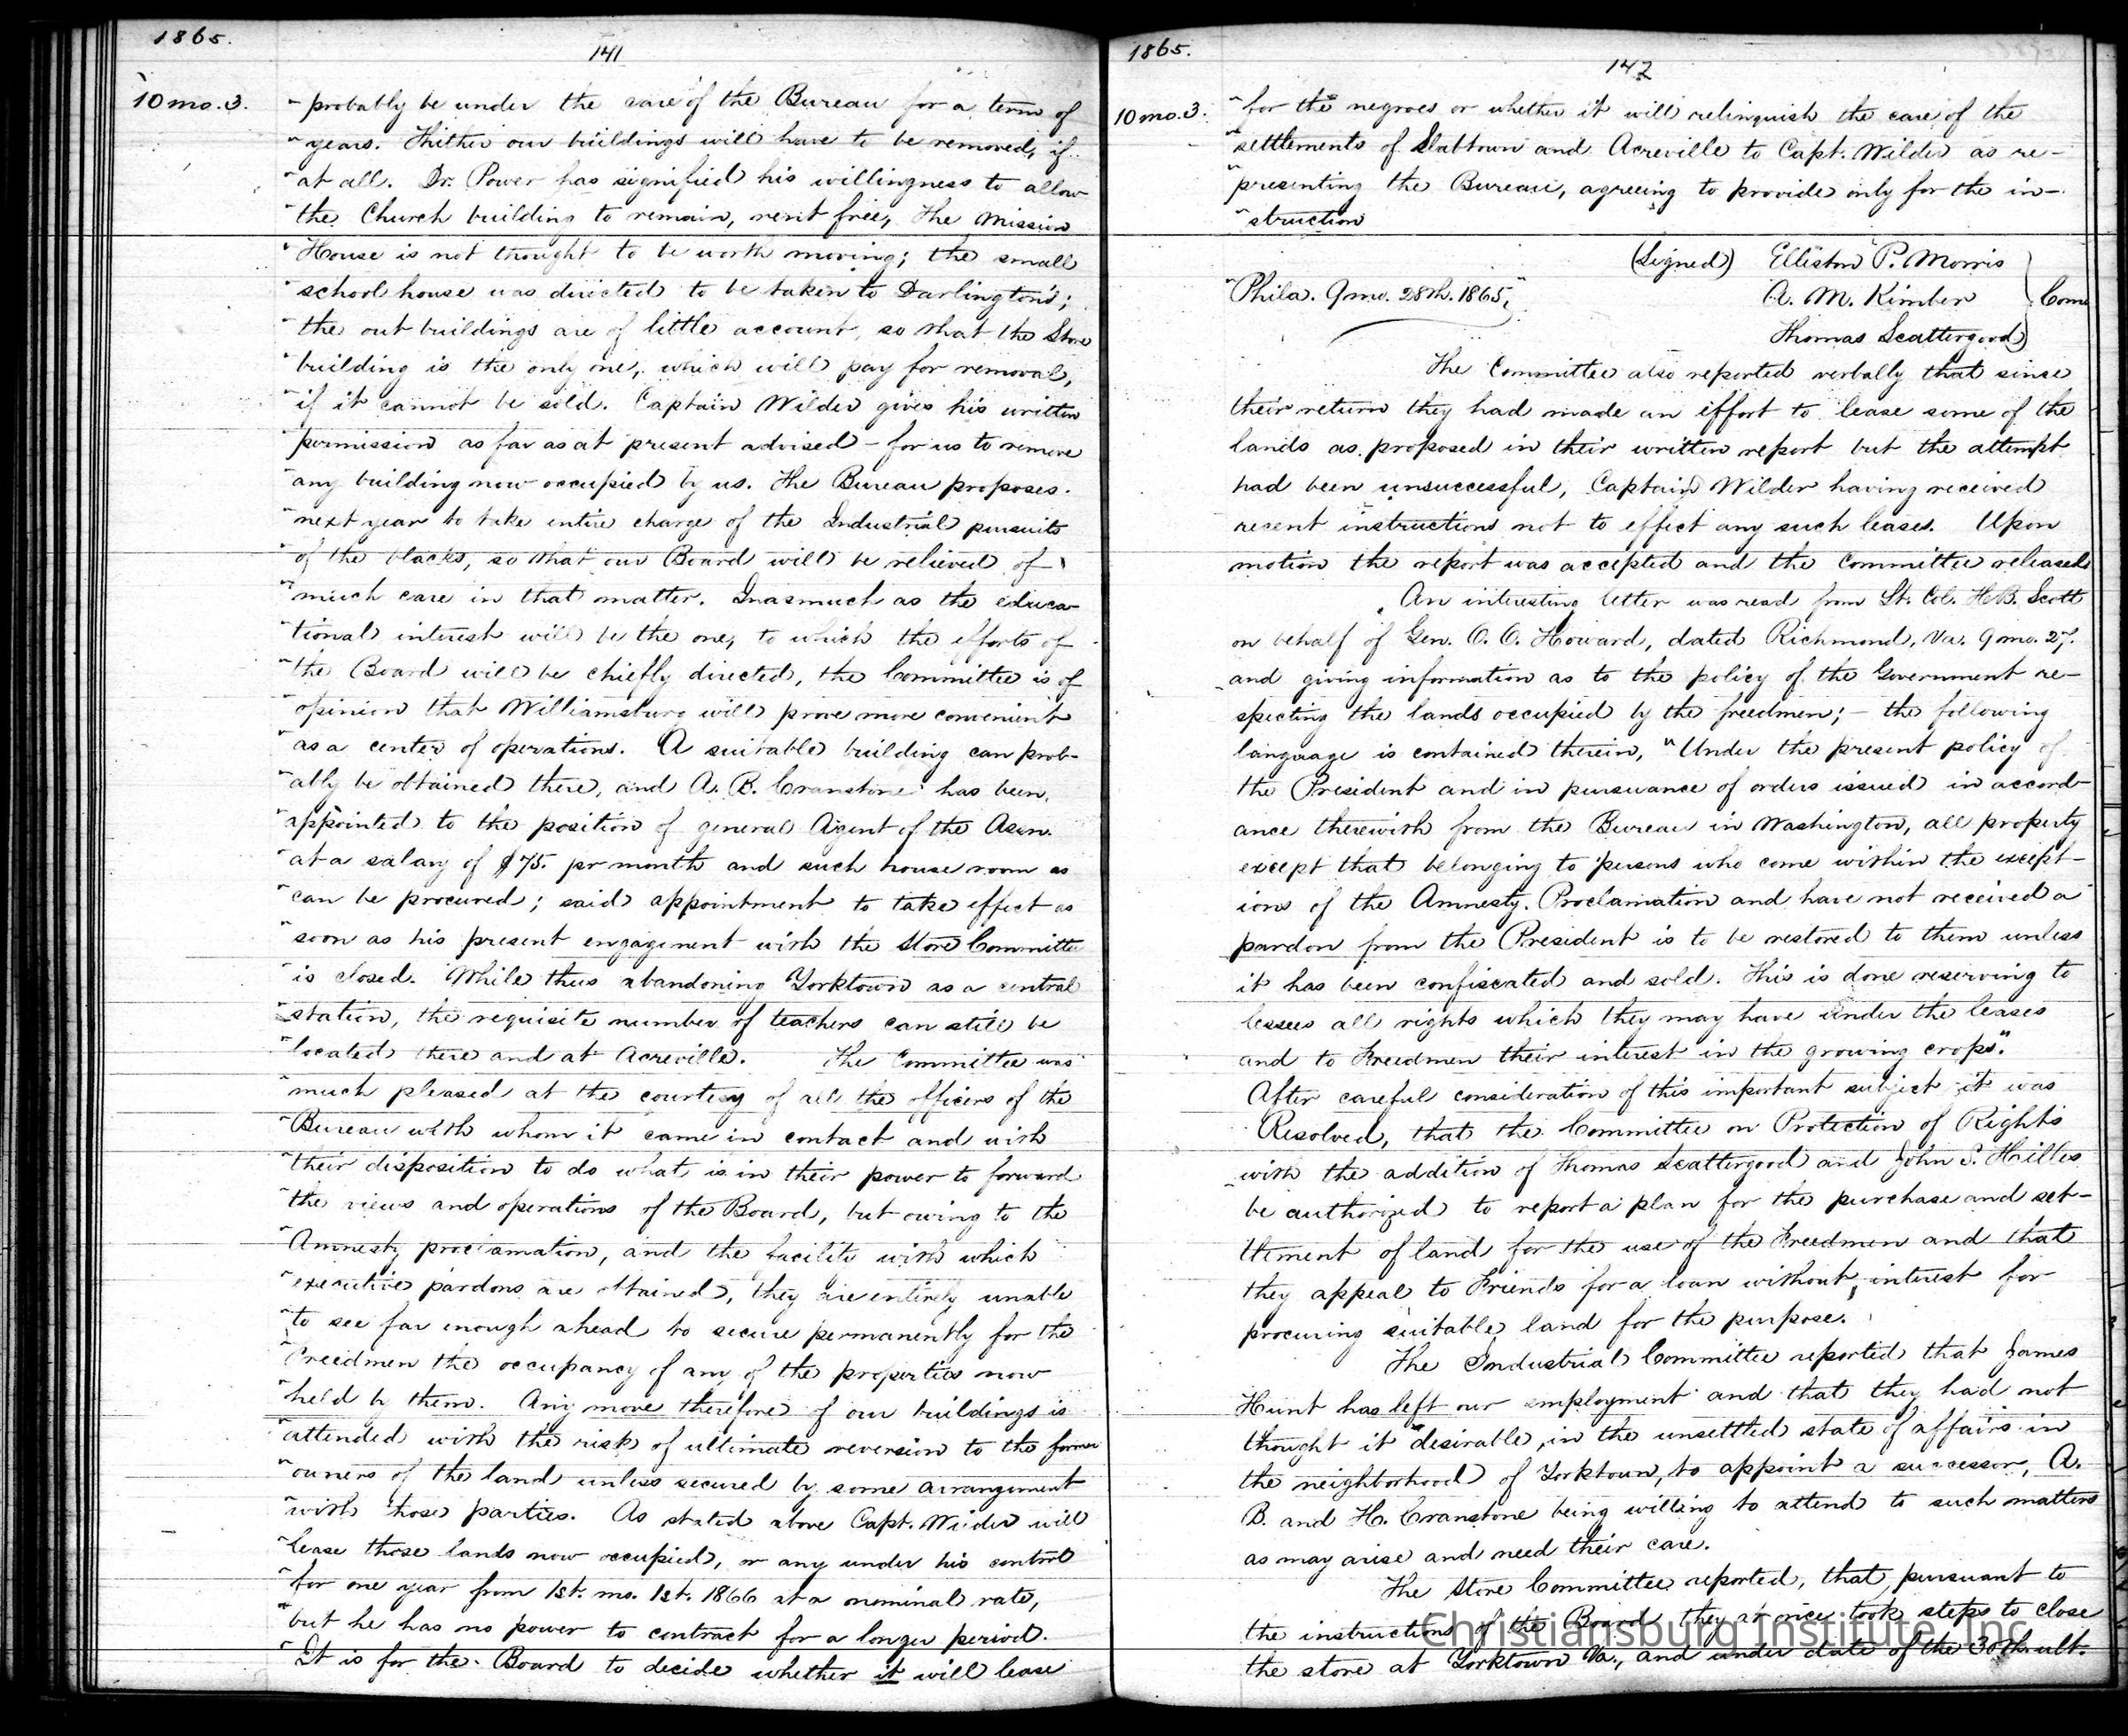 1865.
141
10 mo. 3.
" probably be under the care of the Bureau for a term of
" years. Thither our buildings will have to be removed, if
" at all. Dr. Power has signified his willingness to allow
" the Church building to remain, rent free, the Mission
" House is not thought to be worth moving; the small
" school house was directed to be taken to Darlington's;
" the out buildings are of little account, so that the Store
" building is the only one, which will pay for removal,
" if it cannot be sold. Captain Wilder gives his written
" permission as far as at present advised - for us to remove
" any building now occupied by us. The Bureau proposes
" next year to take entire charge of the Industrial pursuits
" of the blacks, so that our Board will be relieved of
" much care in that matter. Inasmuch as the educa-
" tional interest will be the one, to which the efforts of
" the Board will be chiefly directed, the Committee is of
" opinion that Williamsburg will prove more convenient
" as a center of operations. A suitable building can prob-
" ably be obtained there, and A. B. Cranstone has been
" appointed to the position of general Agent of the Assn.
" at a salary of $75. pr month and such house room as
" can be procured; said appointment to take effect as
" soon as his present engagement with the Store Committee
" is closed. While thus abandoning Yorktown as a central
" station, the requisite number of teachers can still be
" located there and at Acreville. The Committee was
" much pleased at the courtesy of all the officers of the
" Bureau with whom it came in contact and with
" their disposition to do what is in their power to forward
" the views and operations of the Board, but owing to the
" Amnesty proclamation, and the facility with which
" executive pardons are obtained, they are entirely unable
" to see far enough ahead to secure permanently for the
" Freedmen the occupancy of any of the properties now
" held by them. Any move therefore of our buildings is
" attended with the risk of ultimate reversion to the former
" owners of the land unless secured by some arrangement
" with those parties. As stated above Capt. Wilder will
" lease those lands now occupied, or any under his control
" for one year from 1st. mo. 1st. 1866 at a nominal rate,
" but he has no power to contract for a longer period.
" It is for the Board to decide whether it will lease
1865.
142
10 mo. 3.
" for the negroes or whether it will relinquish the care of the
" settlements of Slabtown and Acreville to Capt. Wilder as re-
" presenting the Bureau, agreeing to provide only for the in-
" struction
(Signed) Elliston P. Morris
"Phila. 9 mo. 28th. 1865." A. M. Kimber } Come
Thomas Scattergood
The Committee also reported verbally that since
their return they had made an effort to lease some of the
lands as proposed in their written report but the attempt
had been unsuccessful, Captain Wilder having received
recent instructions not to effect any such leases. Upon
motion the report was accepted and the Committee released
An interesting letter was read from Lt. Col. H. B. Scott
on behalf of Gen. O. O. Howard, dated Richmond, Va. 9 mo. 27.
and giving information as to the policy of the Government re-
specting the lands occupied by the freedmen; - the following
language is contained therein, "Under the present policy of
the President and in pursuance of orders issued in accord-
ance therewith from the Bureau in Washington, all property
except that belonging to persons who come within the except-
ions of the Amnesty Proclamation and have not received a
pardon from the President is to be restored to them unless
it has been confiscated and sold. This is done reserving to
lessees all rights which they may have under the leases
and to Freedmen their interest in the growing crops".
After careful consideration of this important subject it was
Resolved, that the Committee on Protection of Rights
with the addition of Thomas Scattergood and John S. Hilles
be authorized to report a plan for the purchase and set-
tlement of land for the use of the Freedmen and that
they appeal to Friends for a loan without interest for
procuring suitable land for the purpose.
The Industrial Committee reported that James
Hunt has left our employment and that they had not
thought it desirable, in the unsettled state of affairs in
the neighborhood of Yorktown, to appoint a successor, A.
B. and H. Cranstone being willing to attend to such matters
as may arise and need their care.
The Store Committee reported, that, pursuant to
the instructions of the Board they at once took steps to close
the store at Yorktown Va., and under date of the 30th. ult.
Christiansburg Institute, Inc.